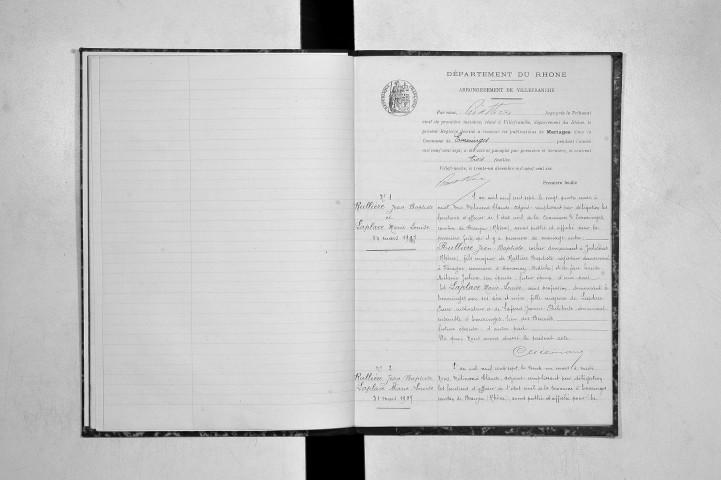 DÉPARTEMENT DU RHONE
ARRONDISSEMENT DE VILLEFRANCHE
Par nous, Juge près le Tribunal
civil de première instance, séant à Villefranche, département du Rhône, le
présent Registre destiné à recevoir les publications de Mariages dans la
Commune de Emeringes pendant l'année
mil neuf cent sept, a été coté et paraphé par première et dernière, et contient
trois feuilles
Villefranche, le trente-un décembre mil neuf cent six.
Première feuille
N° 1
Rullière Jean Baptiste
et
Laplace Marie Louise
24 mars 1907
L'an mil neuf cent sept le vingt quatre mars à
midi Nous Claude adjoint remplissant par délégation les
fonctions d'officier de l'état civil de la Commune d'Emeringes
canton de Beaujeu (Rhône), avons publié et affiché pour la
première fois qu'il y a promesse de mariage entre
Rullière Jean Baptiste, demeurant à Juliénas
(Rhône), fils majeur de Rullière Baptiste demeurant
à commune d'Annonay Ardèche, et de
son épouse, futur époux, d'une part
Et Laplace Marie Louise, sans profession, demeurant à
Emeringes avec ses père et mère, fille majeure de Laplace
cultivateur et de Jeanne demeurant
ensemble à Emeringes, lieu des
future épouse, d'autre part
De quoi Nous avons dressé le présent acte
N° 2
Rullière Jean Baptiste
Laplace Marie Louise
31 mars 1907
L'an mil neuf cent sept le trente un mars à midi
Nous Claude, adjoint remplissant par délégation
les fonctions d'officier de l'état civil de la Commune d'Emeringes
canton de Beaujeu (Rhône), avons publié et affiché pour la